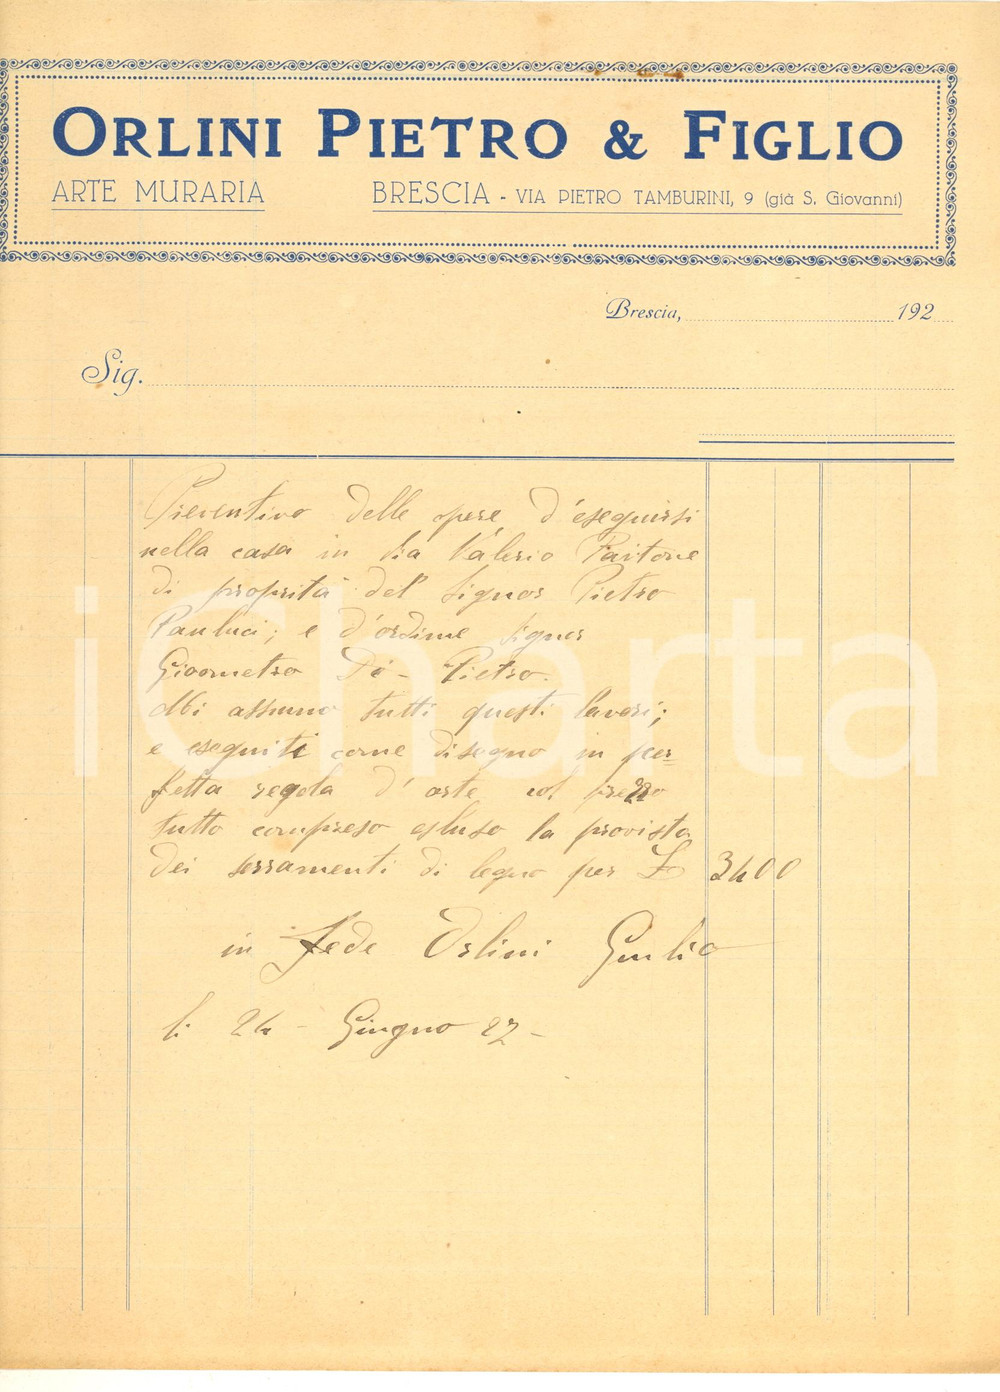 ORLINI PIETRO & FIGLIO
ARTE MURARIA
BRESCIA - VIA PIETRO TAMBURINI, 9 (già S. Giovanni)
Brescia, 192
Sig.
Preventivo delle opere d'eseguirsi
nella casa in Via Valerio Paitone
di proprità del Signor Pietro
Pauluci; e d'ordine Signor
Gioometro Dò - Pietro.
Mi assumo tutti questi lavori;
e eseguiti come disegno in per=
fetta regola d'arte col prezzo
tutto compreso escluso la provista
dei serramenti di legno per £ 3400
in fede Orlini Giulio
li 24 - Giugno 27 -
iCharta